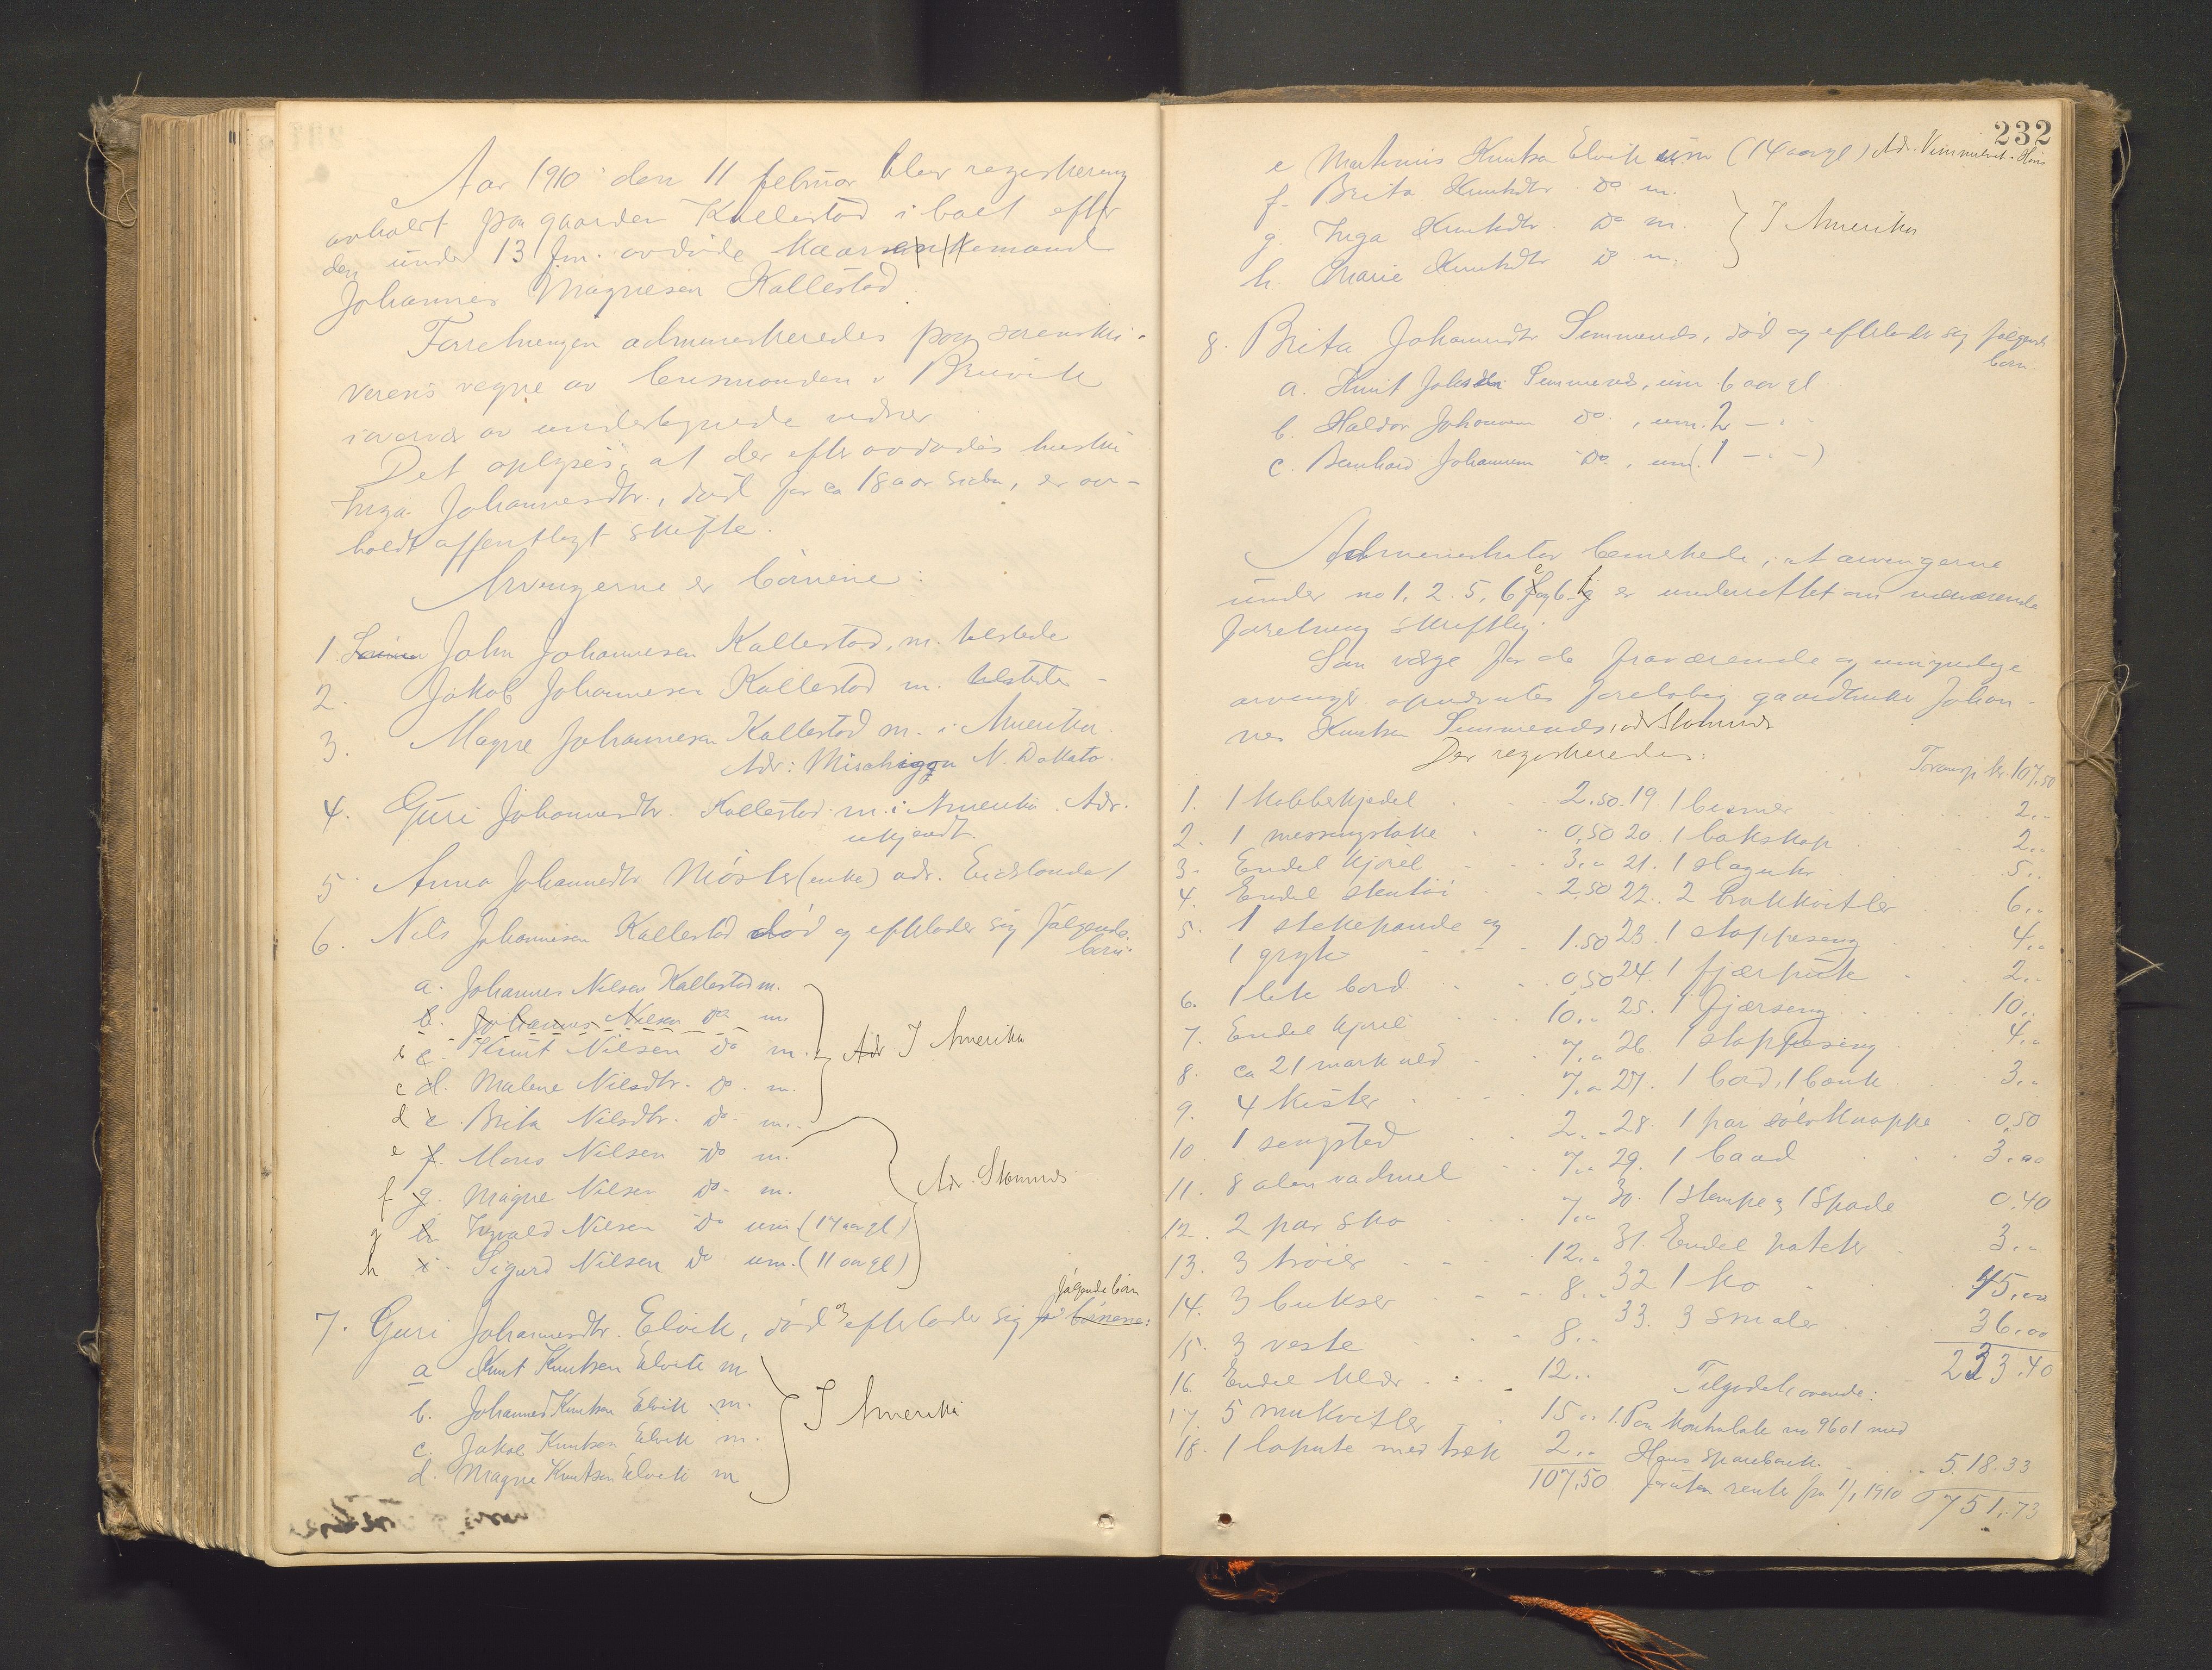 Aar 1910 den 11 februar blev registrering
avholdt paa gaarden Kallestad i boet efter
den under 13 jan. avdøde kaarenkemand
Johannes Magnesen Kallestad.
Forretningen administreredes paa sorenskri-
verens vegne av lensmanden i Bruvik
i overvær av undertegnede vidner
Det oplyses, at der efter avdødes hustru
Inga Johannesdtr., død for ca 18 aar siden, er av-
holdt offentligt skifte.
Arvingerne er børnene:
1. John Johannesen Kallestad, m. tilstede
2. Jakob Johannesen Kallestad m. tilstede -
3. Magne Johannesen Kallestad m. i Amerika.
Adr: Mischigan N. Dakato.
4. Guri Johannesdtr. Kallestad m. i Amerika. Adr.
ukjendt.
5 Anna Johannesdtr Mjøster (enke) adr. Eidslandet
6. Nils Johannesen Kallestad død og efterlader sig følgende
børn.
a. Johannes Nilsen Kallestad m.
b. Johannes Nilsen do m.
b c. Knut Nilsen do m. Adr I Amerika
c d. Malene Nilsdtr. do. m.
d e. Brita Nilsdtr. do m.
e f. Mons Nilsen do m.
f g. Magne Nilsen do. m. Adr. Stamnes
g h Ingvald Nilsen do um. (17 aar gl)
h i. Sigurd Nilsen do um. (11 aar gl)
følgende børn
7. Guri Johannesdtr. Elvik, død og efterlader sig børnene:
a Knut Knutsen Elvik m
b. Johannes Knutsen Elvik m. I Amerika
c. Jakob Knutsen Elvik m.
d. Magne Knutsen Elvik m
232
e Martinus Knutsen Elvik um (14 aar gl) Adr. Vimmelvet - Haus
f. Brita Knutsdtr. do m.
g. Inga Knutsdtr. do m. I Amerika
h. Marie Knutsdtr do m.
8. Brita Johannesdtr Simmenes, død og efterlader sig følgende
børn.
a. Knut Johsen Simmenes, um. 6 aar gl
b. Haldor Johannesen do., um. 2 - . -
c. Bernhard Johannesen do., um. (1 - . -)
Administrator bemerkede, at arvingerne
under no 1. 2. 5, 6 e og 6 f er underrettet om nærværende
forretning skriftlig.
Som verge for de fraværende og umyndige
arvinger opnævntes foreløbig gaardbruker Johan-
nes Knutsen Simmenes, adr Stamnes
Der registreredes:
Transp kr. 107,50
1. 1 kobberkjedel 2.50. 19 1 bismer 2.-
2. 1 messingstake 0,50 20. 1 bakskap 2..
3. Endel kjørel 3.. 21. 1 slaguhr 5..
4. Endel stentøi 2,50 22.. 2 brukkvitler 6..
5. 1 stekepande og
1 gryte 1.50 23. 1 stoppeseng 4..
6. 1 lite bord 0,50 24. 1 fjærpute 2..
7. Endel kjørel 10.. 25. 1 fjærseng 10..
8. ca 21 mark uld 7.. 26. 1 stoppeseng 4..
9. 4 kister 7.. 27. 1 bord, 1 bænk 3..
10 1 sengsted 2.. 28. 1 par sølvknapper 0,50
11. 8 alen vadmel 7.. 29. 1 baad 3.00
12. 2 par sko 7.. 30. 1 stampe og 1 spade 0.40
13. 3 trøier 12.. 31. Endel poteter 3..
14. 3 bukser 8.. 32 1 ko 45,00
15. 3 veste 8.. 33. 3 smaler 36.00
16. Endel klær 12.. 233.40
17. 5 smukvitler 15.. Tilgodehavende:
18. 1 loput med træk 2.. 1. Paa kontrabok no 9601 med
107,50 Haus sparebank 518.33
foruten renter fra 1/1 1910
751.73